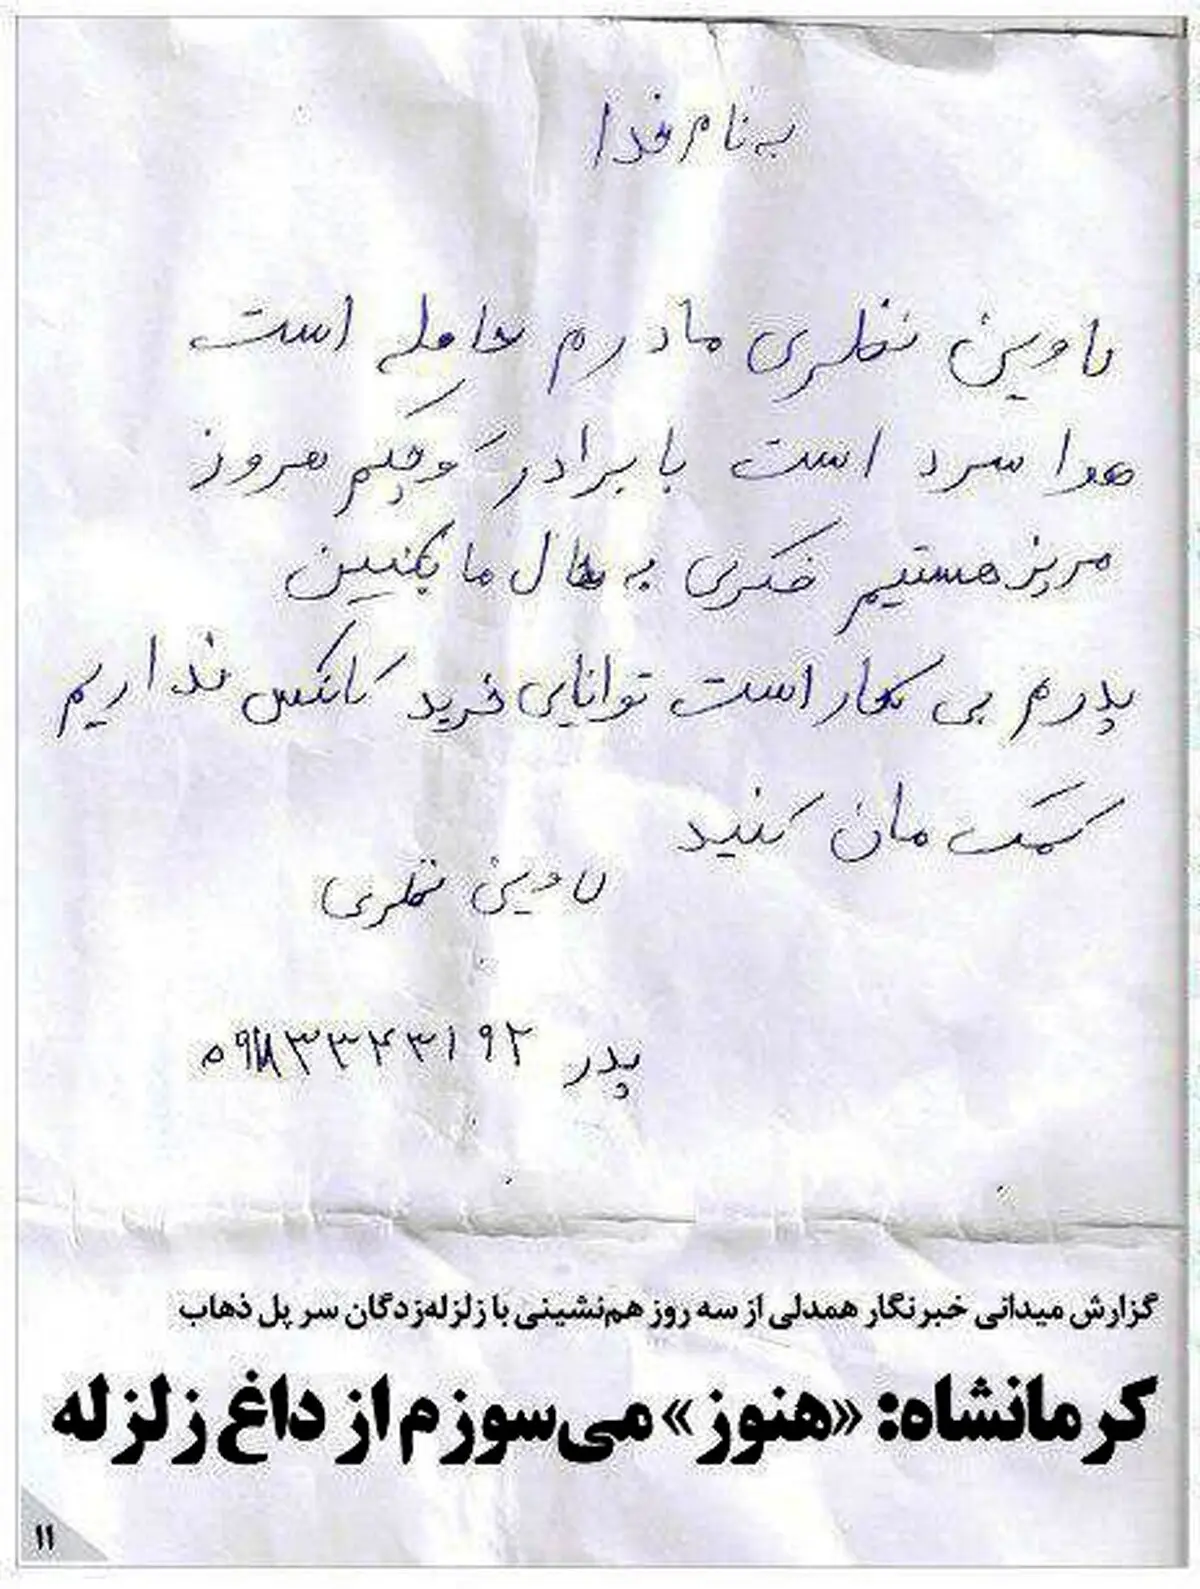 به نام خدا
نظری مادرم حامله است
هوا سرد است با برادر کوچکم هروز
مریز هستیم فکری به حال ما بکنیین
پدرم بی کار است توانایی خرید کانکس نداریم
کمک مان کنید
نظری
پدر ۰۹۱۸۳۳۴۳۱۹۲
گزارش میدانی خبرنگار همدلی از سه روز هم‌نشینی با زلزله‌زدگان سر پل ذهاب
کرمانشاه: «هنوز» می‌سوزم از داغ زلزله
۱۱